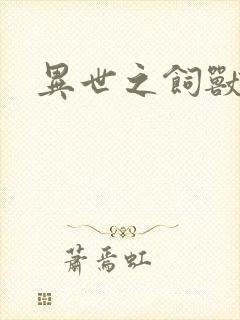 異世之飼獸
蕭焉虹